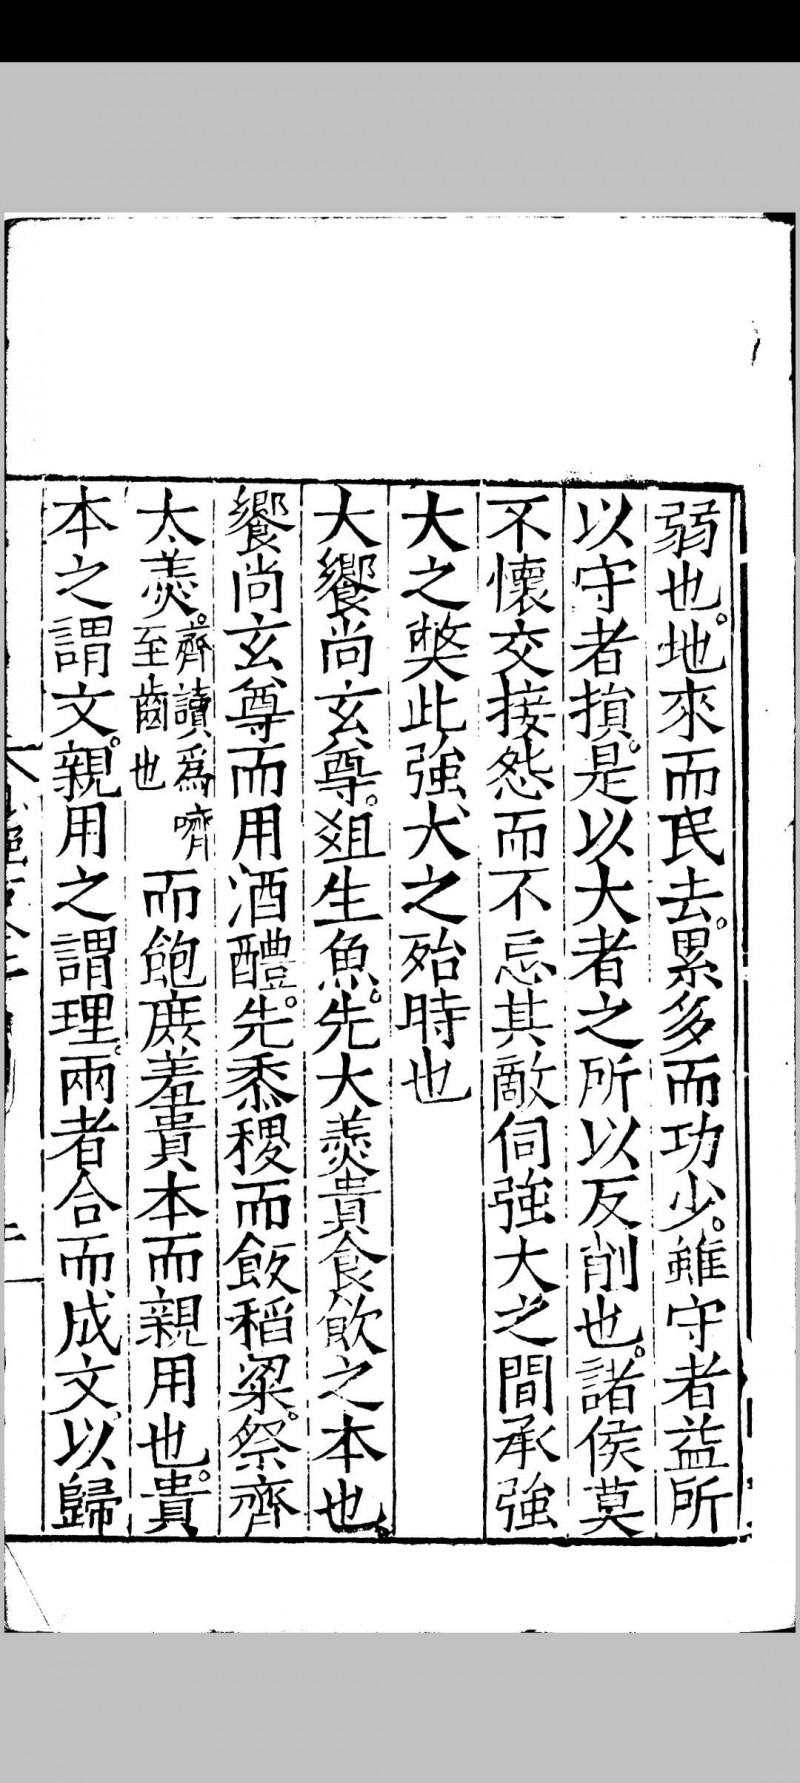 弱也。地來而民去。累多而功少。雖守者益所
以守者損。是以大者之所以反削也。諸侯莫
不懷交接怨而不忘其敵伺強大之間承強
大之獘此強大之殆時也
大饗尚玄尊。爼生魚。先大羮貴食飲之本也。
饗尚玄尊而用酒醴。先黍稷而飯稻粱。祭齊
太羮。齊讀爲嚌至齒也而飽庶羞貴本而親用也。貴
本之謂文。親用之謂理。兩者合而成文。以歸